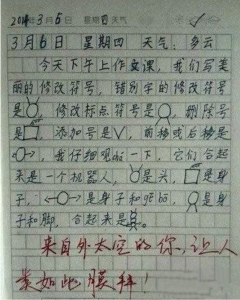 2014年3月6日 星期四 天气
3月6日 星期四 天气：多云
今天下午上作文课，我们写美
丽的修改符号，错别字的修改符号
是 修改标点符号是 ，删除号
是 ，添加号是∨，前移或后移是
，我仔细观 一下，它们合起
来是一个机器人， 是头， 是身
子， 是身子和 ， 是身
子和脚，合起来是
来自外太空的你，让人
类如此膜拜！